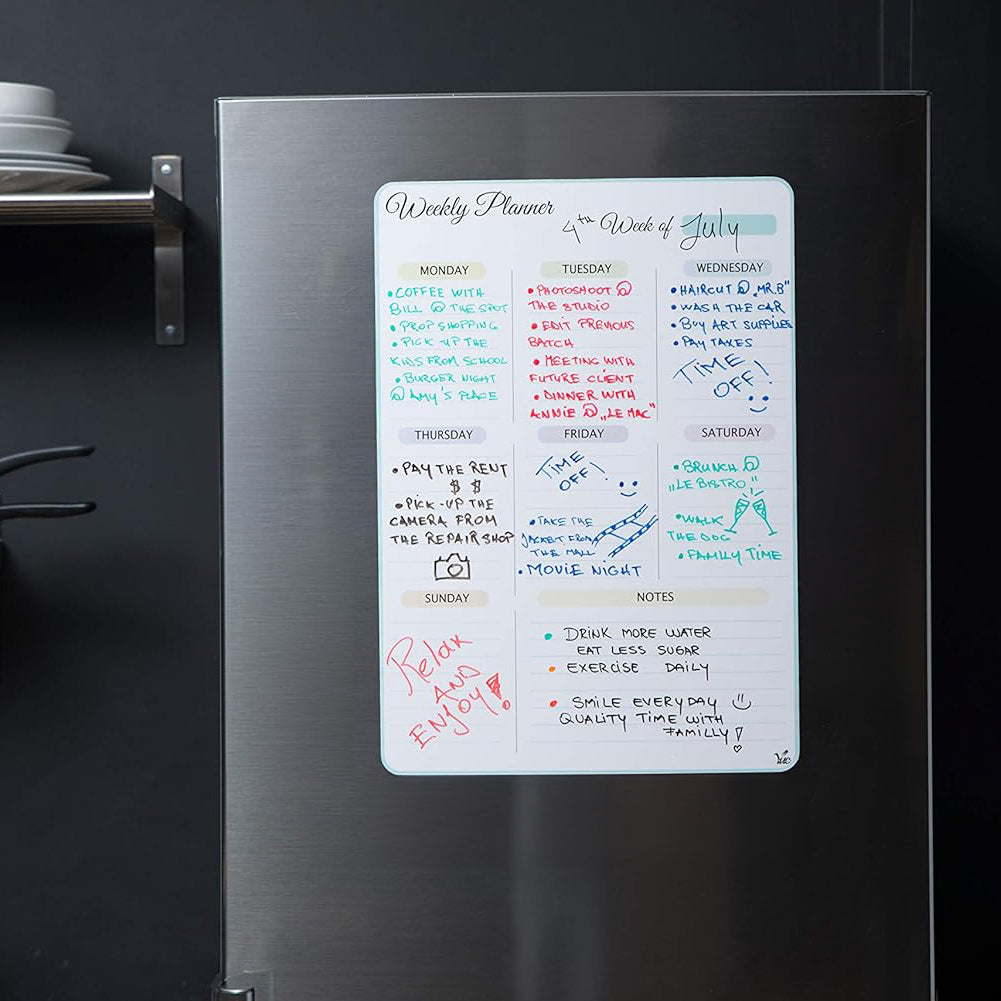 Weekly Planner
4th Week of July
MONDAY
• COFFEE WITH
BILL @ THE SPOT
• PROP SHOPPING
• PICK-UP THE
KIDS FROM SCHOOL
• BURGER NIGHT
@ AMY'S PLACE
TUESDAY
• PHOTOSHOOT @
THE STUDIO
• EDIT PREVIOUS
BATCH
• MEETING WITH
FUTURE CLIENT
• DINNER WITH
ANNIE @ „LE MAC"
WEDNESDAY
• HAIRCUT @ „MR.B"
• WASH THE CAR
• BUY ART SUPPLIES
• PAY TAXES
TIME
OFF!
THURSDAY
• PAY THE RENT
$ $
• PICK-UP THE
CAMERA FROM
THE REPAIR SHOP
FRIDAY
TIME
OFF!
• TAKE THE
JACKET FROM
THE MALL
• MOVIE NIGHT
SATURDAY
• BRUNCH @
„LE BISTRO"
• WALK
THE DOG
• FAMILY TIME
SUNDAY
Relax
AND
ENJOY!
NOTES
• DRINK MORE WATER
EAT LESS SUGAR
• EXERCISE DAILY
• SMILE EVERYDAY
QUALITY TIME WITH
FAMILLY!